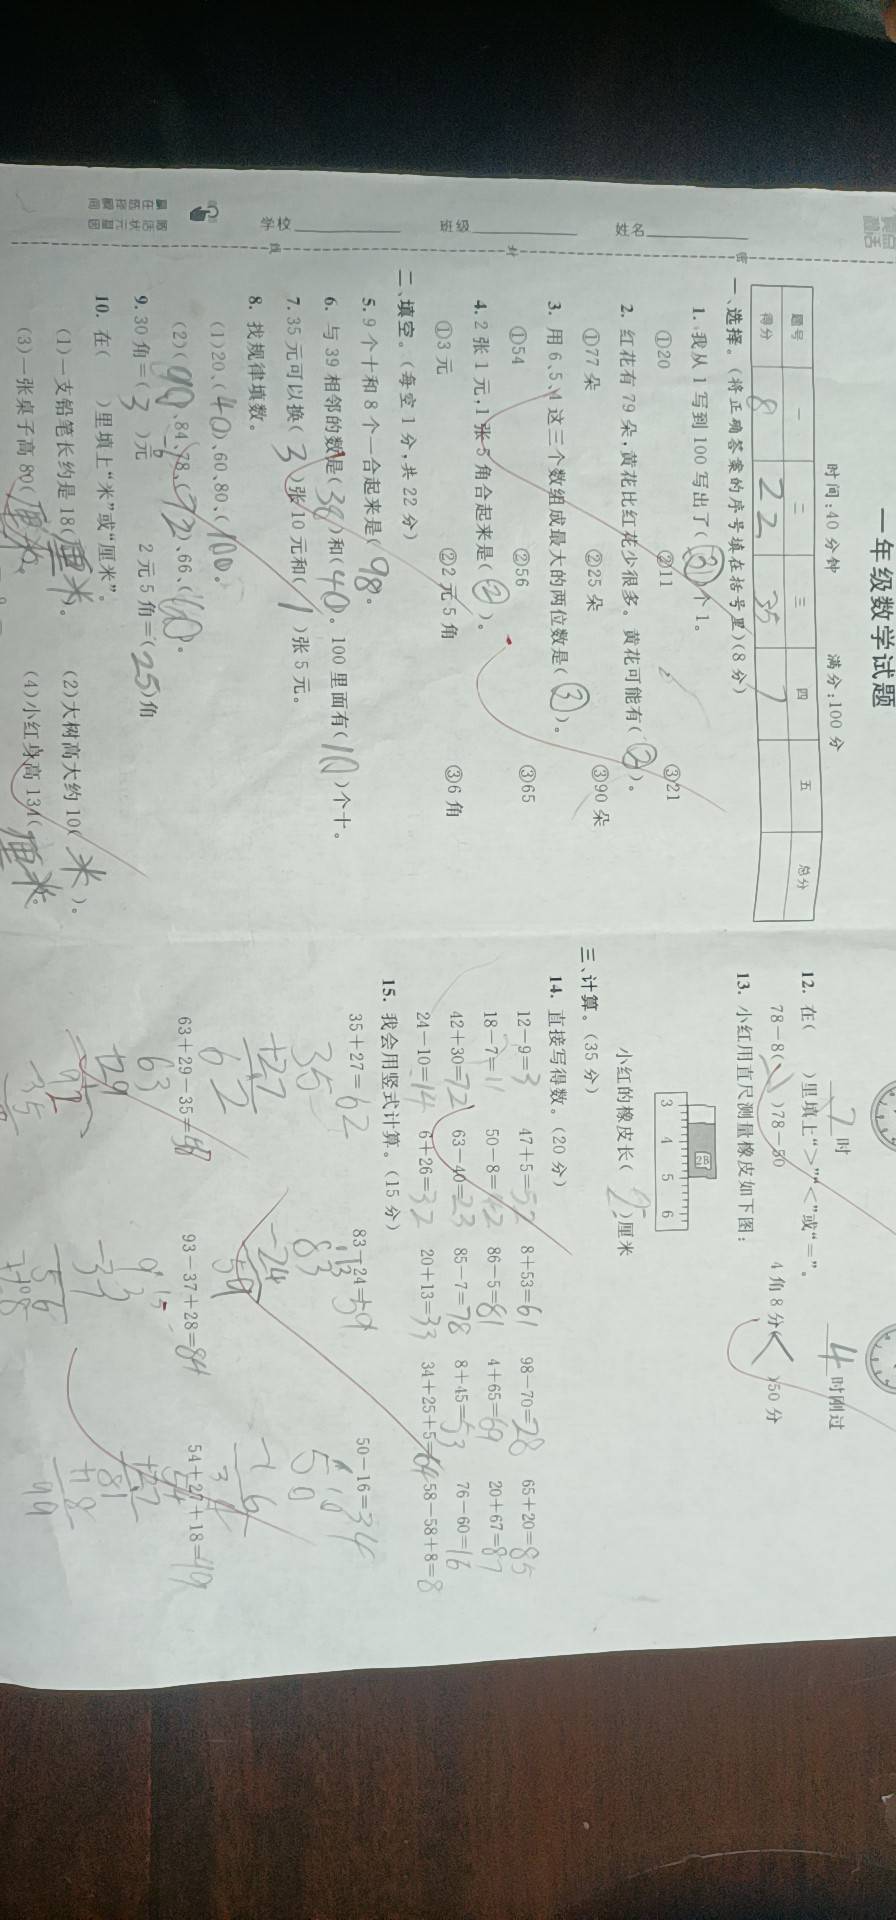 一年级数学试题
时间:40 分钟 满分:100 分
题号 一 二 三 四 五 总分
得分 8 22 35 7
姓名
班级
学校
密
封
线
一、选择。(将正确答案的序号填在括号里)(8 分)
1. 我从 1 写到 100 写出了(③)个 1。
①20 ②11 ③21
2. 红花有 79 朵,黄花比红花少很多。黄花可能有(②)。
①77 朵 ②25 朵 ③90 朵
3. 用 6、5、1 这三个数组成最大的两位数是(③)。
①54 ②56 ③65
4. 2 张 1 元,1 张 5 角合起来是(②)。
①3 元 ②2 元 5 角 ③6 角
二、填空。(每空 1 分,共 22 分)
5. 9 个十和 8 个一合起来是(98)。
6. 与 39 相邻的数是(38)和(40)。100 里面有(10)个十。
7. 35 元可以换(3)张 10 元和(1)张 5 元。
8. 找规律填数。
(1)20、(40)、60、80、(100)。
(2)(90)、84、78、(72)、66、(60)。
-6
9. 30 角=(3)元 2 元 5 角=(25)角
10. 在( )里填上“米”或“厘米”。
(1)一支铅笔长约是 18(厘米)。 (2)大树高大约 10(米)。
(3)一张桌子高 80(厘米)。 (4)小红身高 134(厘米)。
7时 4时刚过
12. 在( )里填上“>”“<”或“=”。
78-8(>)78-50 4 角 8 分(<)50 分
13. 小红用直尺测量橡皮如下图:
2B
3 4 5 6
小红的橡皮长(2)厘米
三、计算。(35 分)
14. 直接写得数。(20 分)
12-9=3 47+5=52 8+53=61 98-70=28 65+20=85
18-7=11 50-8=42 86-5=81 4+65=69 20+67=87
42+30=72 63-40=23 85-7=78 8+45=53 76-60=16
24-10=14 6+26=32 20+13=33 34+25+5=64 58-58+8=8
15. 我会用竖式计算。(15 分)
35+27=62 83-24=59 50-16=34
35 83 50
+27 -24
62 59
63+29-35= 93-37+28=84 54+27+18=
63
+29 -37 +27
92 56 81
-35 +28 +18
99